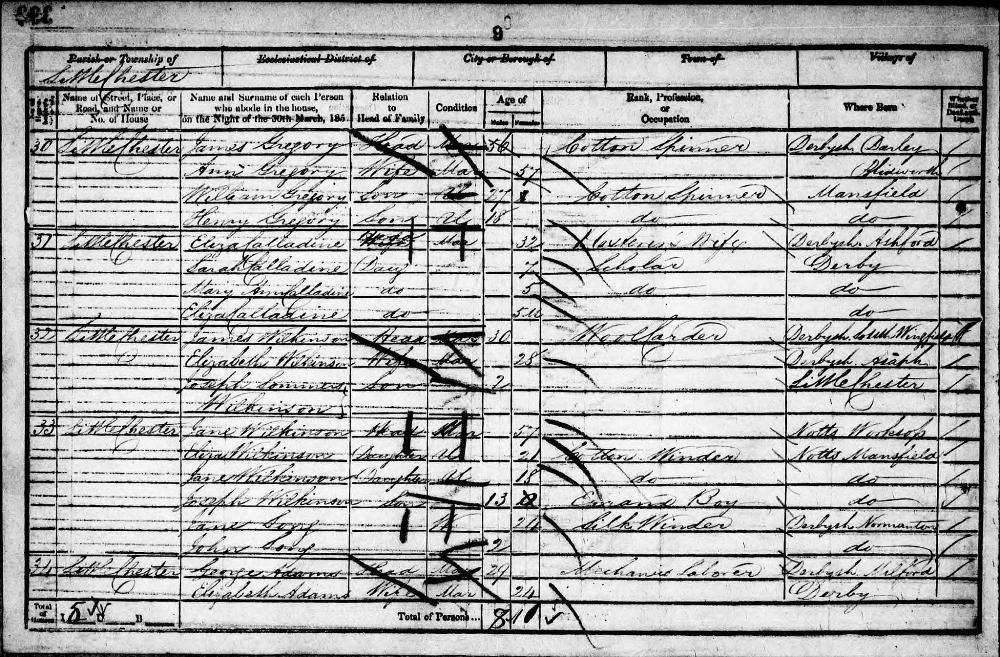 9
Parish or Township of Ecclesiastical District of City or Borough of Town of Village of
Little Chester
Name of Street, Place, or Road, and Name or No. of House Name and Surname of each Person who abode in the house, on the Night of the 30th March, 185 Relation to Head of Family Condition Age of Males Females Rank, Profession, or Occupation Where Born
30 Little Chester James Gregory Head Mar 56 Cotton Spinner Derbysh Darley
Ann Gregory Wife Mar 57
William Gregory Son 27 Cotton Spinner Mansfield
Henry Gregory Son U 18 do do
31 Little Chester Eliza Calladine Wife Mar 32 Wife Derbysh Ashford
Sarah Calladine Daug 7 Scholar Derby
Mary Ann Calladine do 5 do do
Eliza Calladine do do
32 Little Chester James Wilkinson Head Mar 30 Wool Carder Derbysh South Wingfield
Elizabeth Wilkinson Wife Mar 28 Derbysh
Joseph Sommers Son 2 Little Chester
Wilkinson
33 Little Chester Jane Wilkinson Head Mar 57 Notts Worksop
Eliza Wilkinson Daughter U 21 Cotton Winder Notts Mansfield
Jane Wilkinson Daughter U 18 do do
Joseph Wilkinson Son 13 Errand Boy do
Jane Long W 24 Silk Winder Derbysh Normanton
John Long 2 do
34 Little Chester George Adams Head Mar 29 Mechanics Laborer Derbysh Milford
Elizabeth Adams Wife Mar 24 Derby
Total of Houses I 5 U B Total of Persons... 8 10